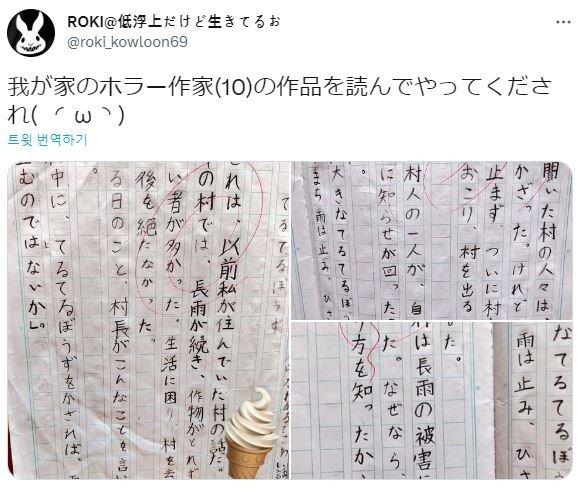 ROKI@低浮上だけど生きてるお
@roki_kowloon69
我が家のホラー作家(10)の作品を読んでやってくださ
れ( ╯ ω ╰ )
트윗 번역하기
てるてるぼうず
れは、以前私が住んでいた村の話だ。
の村では、長雨が続き、作物がとれず
い者が多かった。生活に困り、村を去
後を絶たなかった。
る日のこと、村長がこんなことを言い
。
中に、てるてるぼうずをかざれば、
むのではないか」。
聞いた村の人々は、
かざった。けれど
止まず、ついに村
おこり、村を出る
村人の一人が、自
に知らせが回った
大きなてるてるぼう
まち雨は止み、ひさ
なてるてるぼ
雨は止み、ひさ
た。
は長雨の被害に
た。なぜなら、
方を知ったか